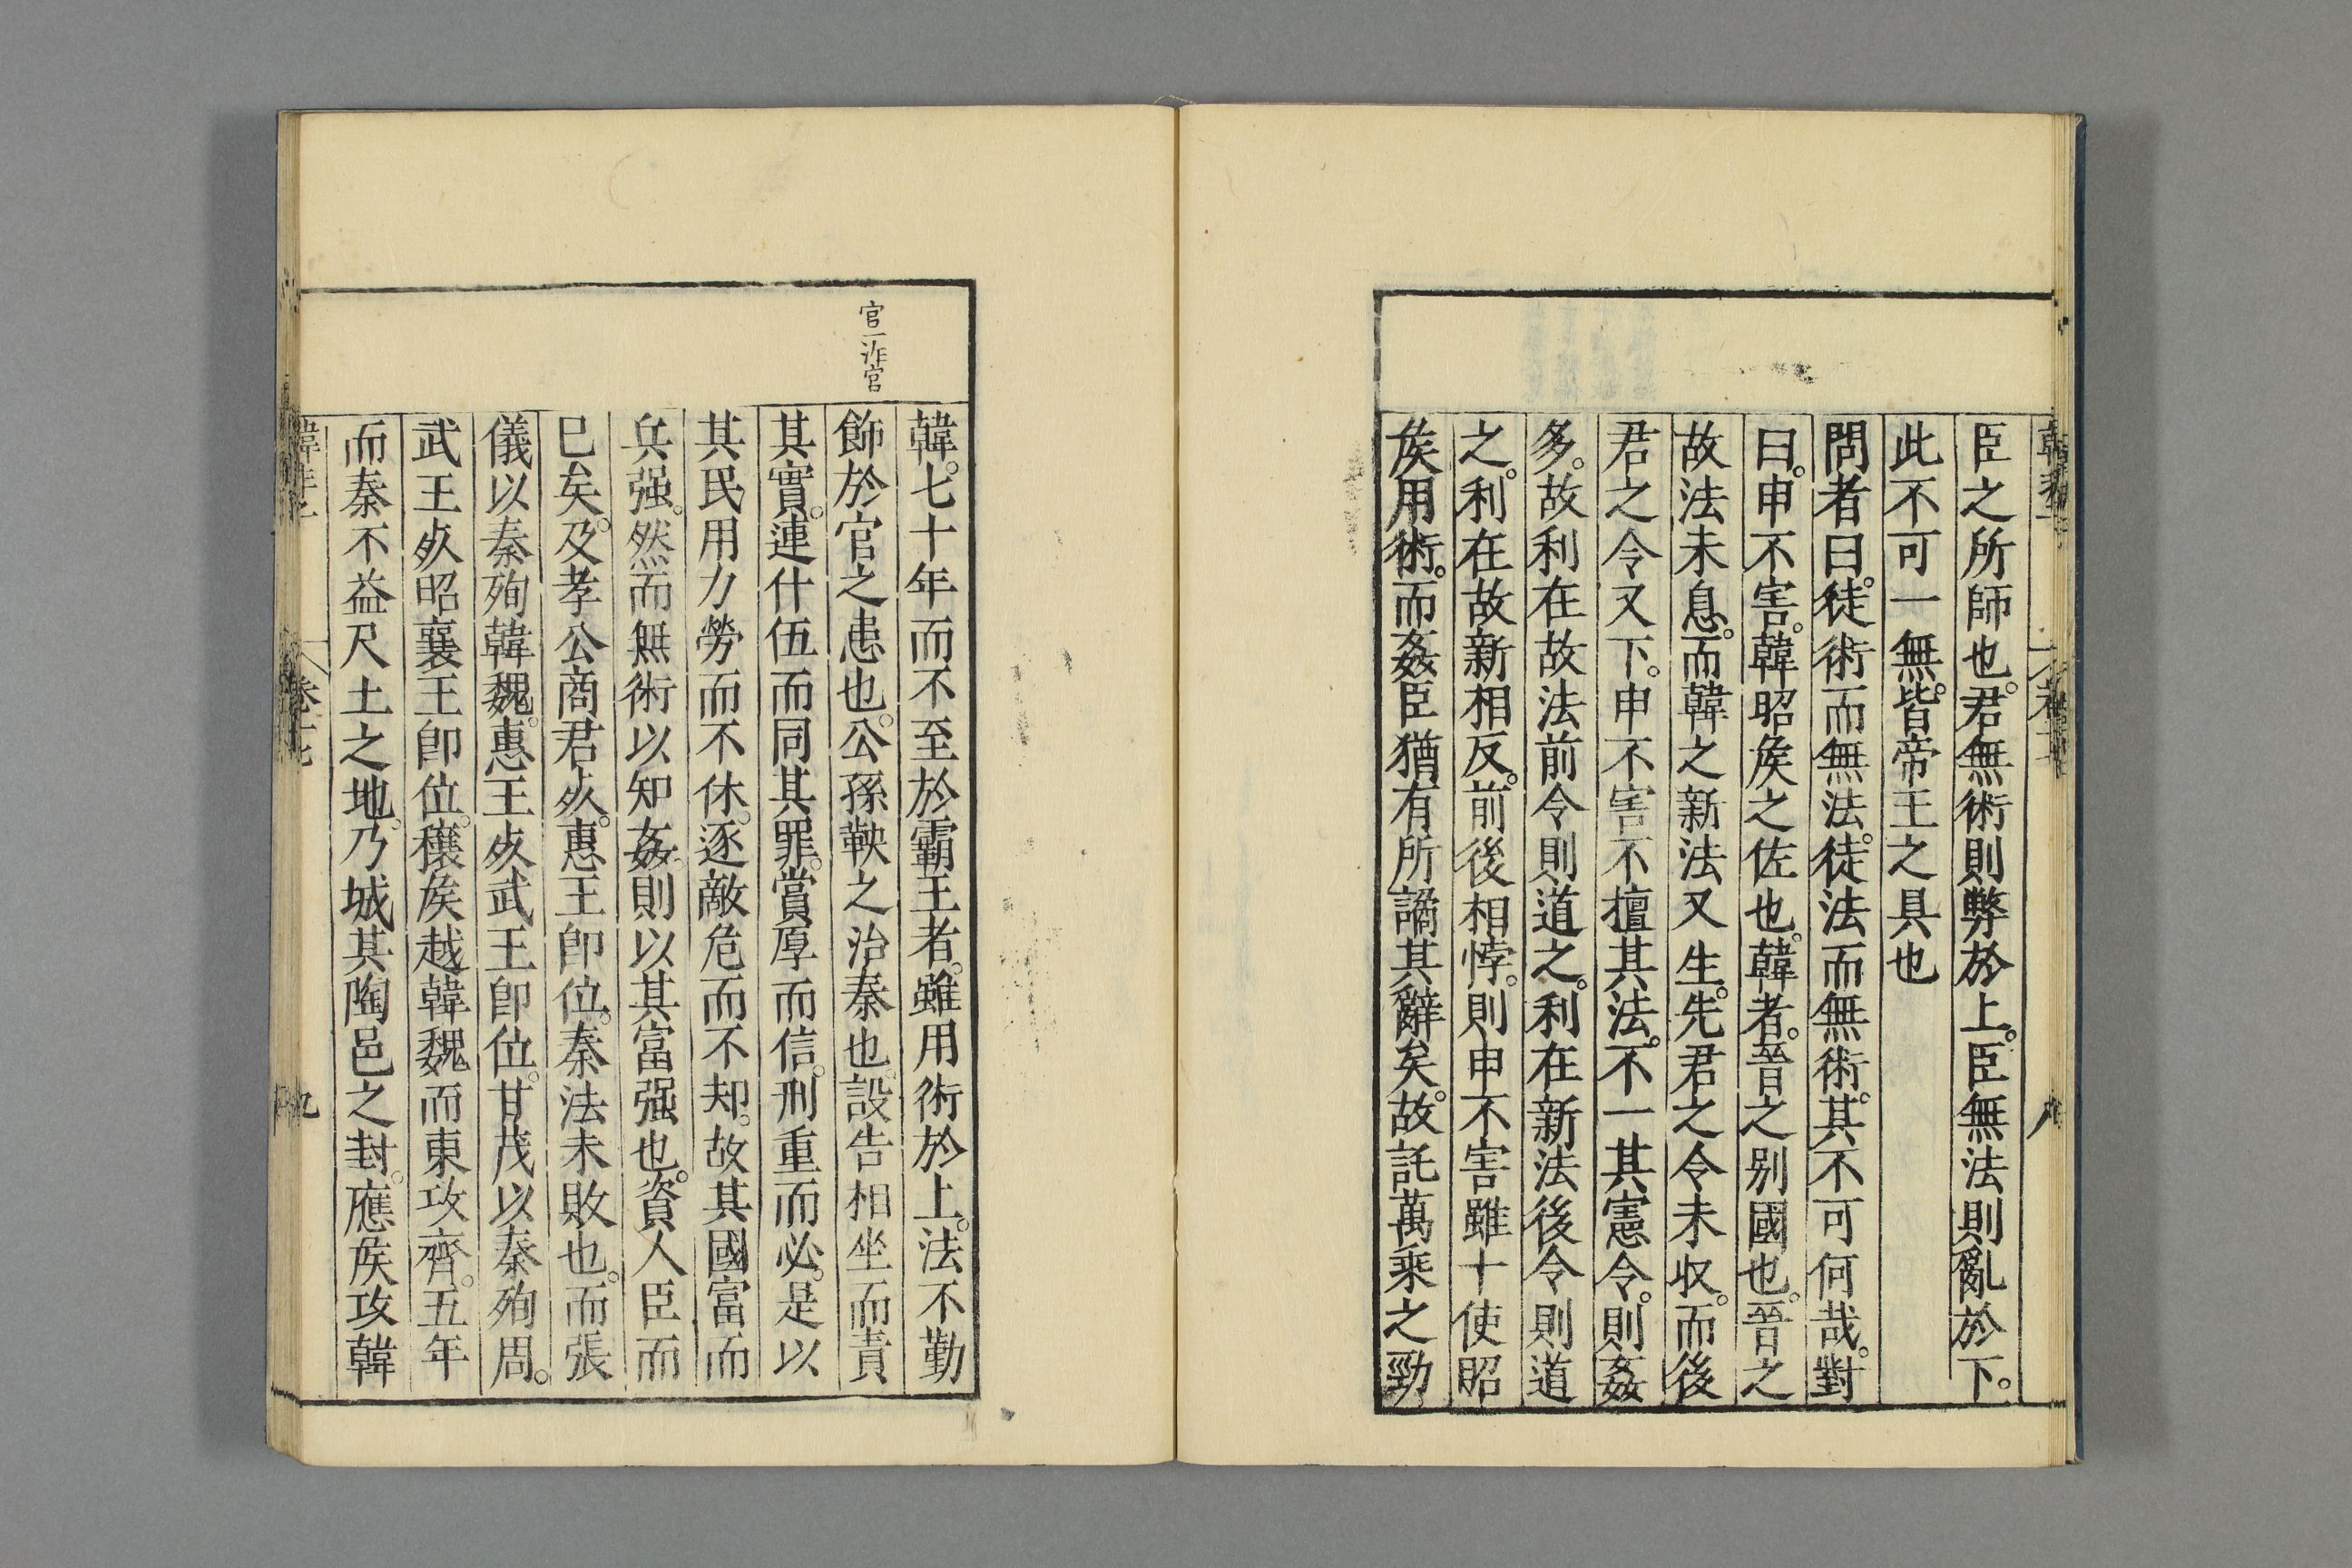 臣之所師也。君無術則弊於上。臣無法則亂於下。
此不可一無。皆帝王之具也
問者曰。徒術而無法。徒法而無術。其不可何哉。對
曰。申不害。韓昭矦之佐也。韓者。晉之别國也。晉之
故法未息。而韓之新法又生。先君之令未収。而後
君之令又下。申不害不擅其法。不一其憲令。則姦
多。故利在故法前令則道之。利在新法後令則道
之。利在故新相反。前後相悖。則申不害雖十使昭
矦用術。而姦臣猶有所譎其辭矣。故託萬乘之勁
韓。七十年而不至於霸王者。雖用術於上。法不勤
飾於官之患也。公孫鞅之治秦也。設告相坐而責
其實。連什伍而同其罪。賞厚而信。刑重而必。是以
其民用力勞而不休。逐敵危而不却。故其國富而
兵强。然而無術以知姦。則以其富强也。資人臣而
已矣。及孝公商君死。惠王卽位。秦法未敗也。而張
儀以秦殉韓魏。惠王死武王卽位。甘茂以秦殉周。
武王死昭襄王卽位。穰矦越韓魏而東攻齊。五年
而秦不益尺土之地。乃城其陶邑之封。應矦攻韓
官一作官
九